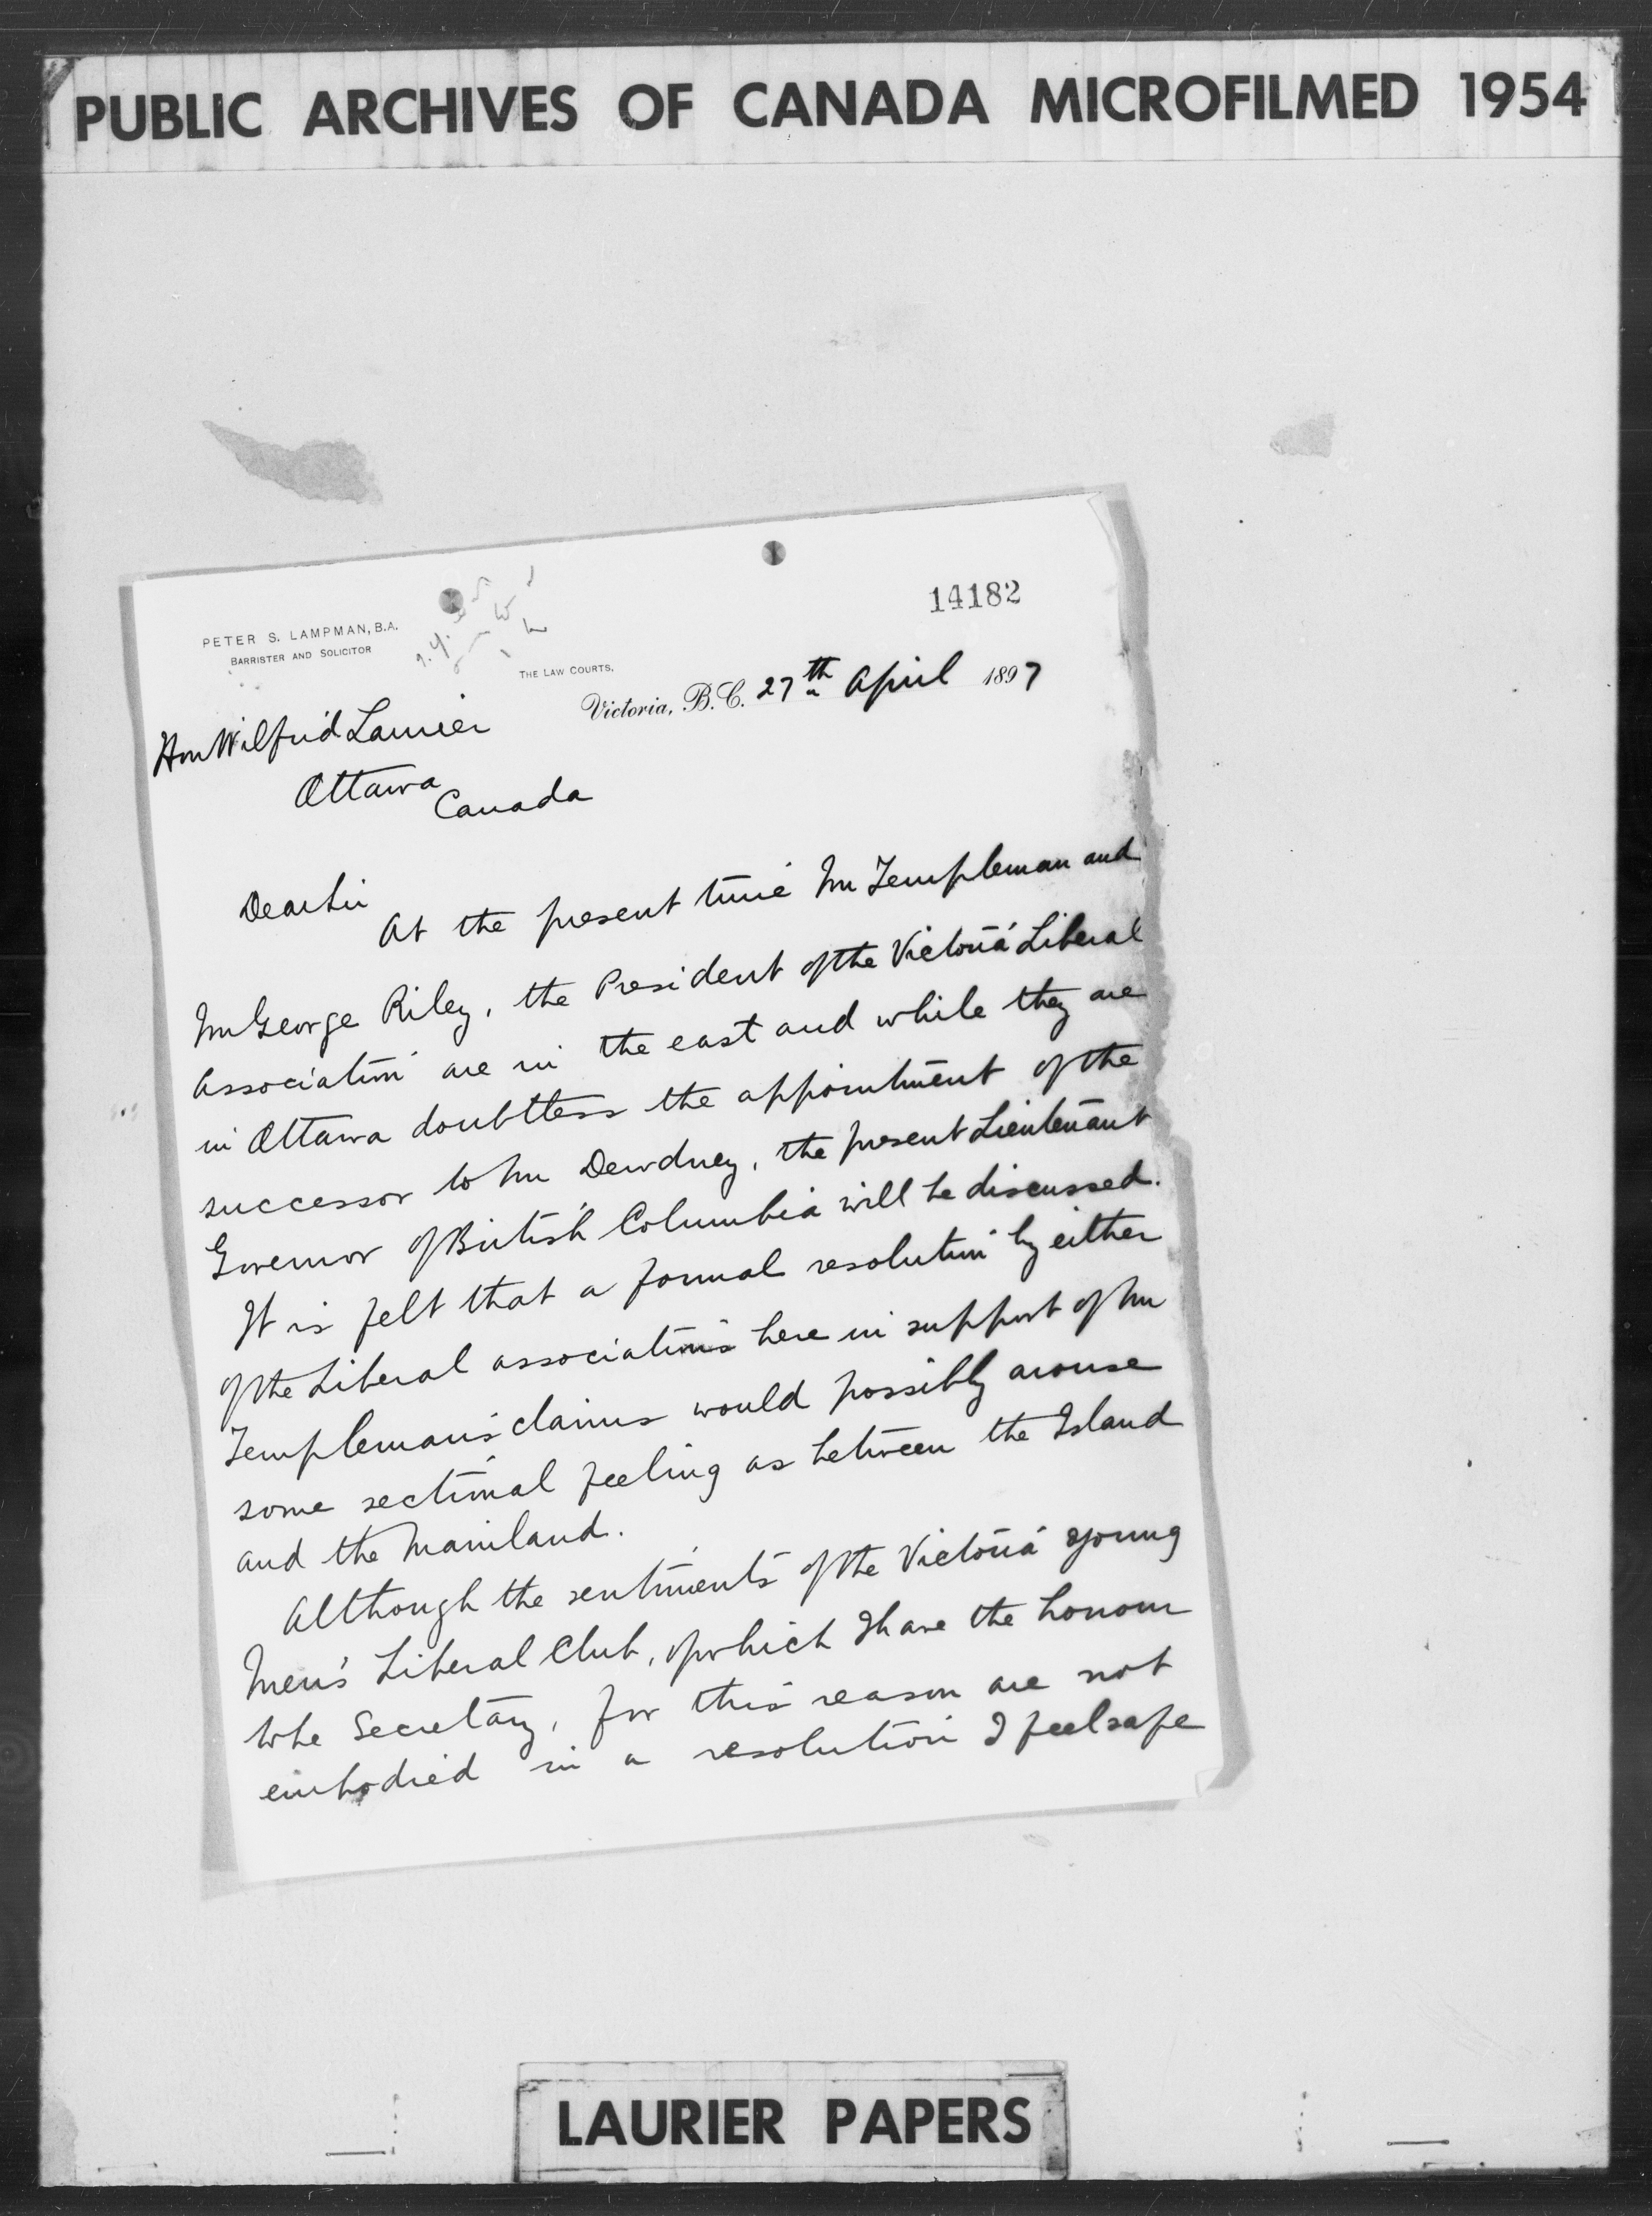 PUBLIC ARCHIVES OF CANADA MICROFILMED 1954
14182
PETER S. LAMPMAN, B.A.
BARRISTER AND SOLICITOR
THE LAW COURTS,
Victoria, B.C. 27th April 1897
Hon Wilfrid Laurier
Ottawa
Canada
Dear Sir
At the present time Mr Templeman and
Mr George Riley, the President of the Victoria Liberal
Association are in the east and while they are
in Ottawa doubtless the appointment of the
successor to Mr Dewdney, the present Lieutenant
Governor of British Columbia will be discussed.
It is felt that a formal resolution by either
of the Liberal associations here in support of Mr
Templeman's claims would possibly arouse
some sectional feeling as between the Island
and the Mainland.
Although the sentiments of the Victoria Young
Men's Liberal Club, of which I have the honour
to be Secretary, for this reason are not
embodied in a resolution I feel safe
LAURIER PAPERS